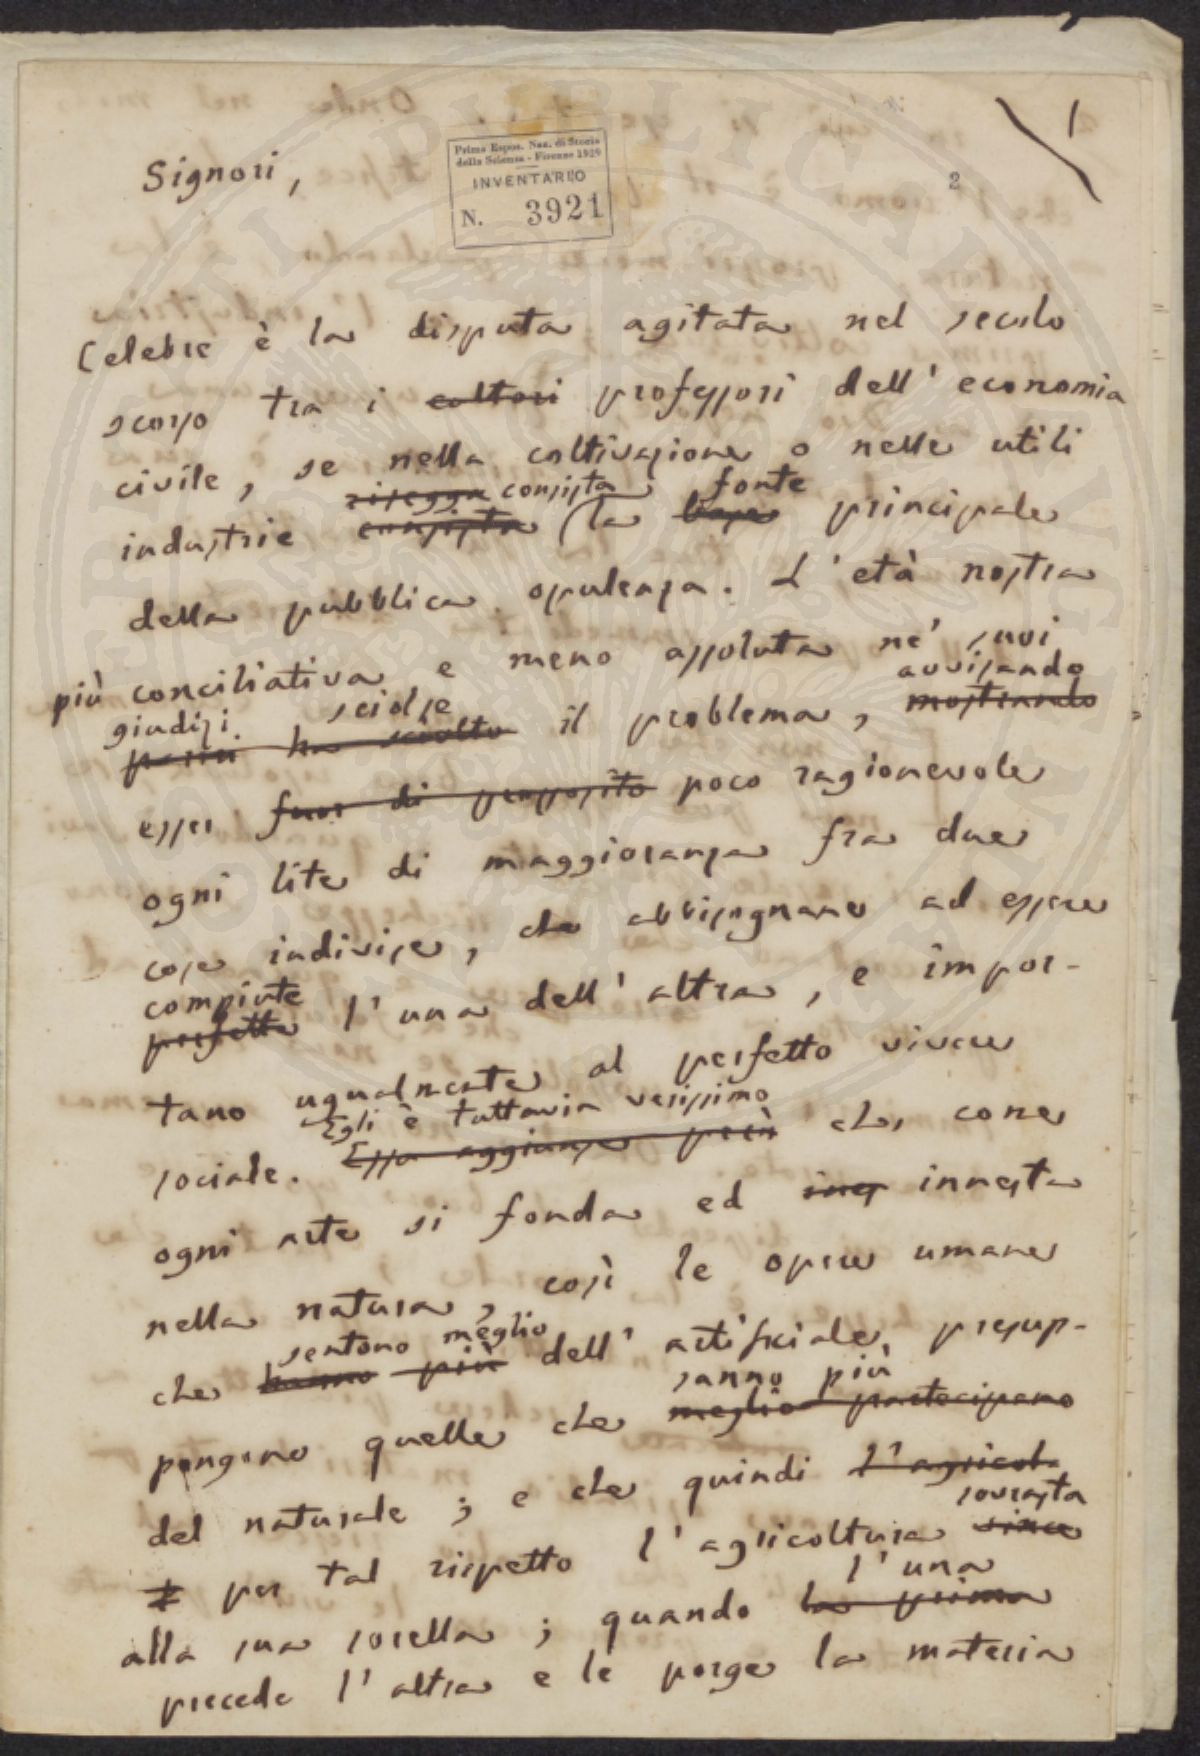 1
Prima Espos. Naz. di Storia
della Scienza - Firenze 1929
INVENTARIO
N. 3921
2
Signori,
Celebre è la disputa agitata nel secolo
scorso tra i cultori professori dell' economia
civile, se nella coltivazione o nelle utili
risegga consista fonte
industrie consista (la base principale
della pubblica opulenza. L'età nostra
più conciliativa e meno assoluta ne' suoi
giudizi sciolse avvisando
pareri ha sciolto il problema, mostrando
esser fuor di proposito poco ragionevole
ogni lite di maggioranza fra due
cose indivise, che abbisognano ad essere
compiute
perfette l'una dell' altra, e impor-
tano ugualmente al perfetto vivere
Egli è tuttavia verissimo
sociale. Essa aggiunge però che, come
ogni arte si fonda ed ines innesta
nella natura, così le opere umane
sentono meglio
che hanno più dell' artificiale, presup-
sanno più
pongono quelle che meglio partecipano
del naturale; e che quindi l'agricol-
sovrasta
per tal rispetto l'agricoltura vince
l'una
alla sua sorella; quando la prima
precede l'altra e le porge la materia